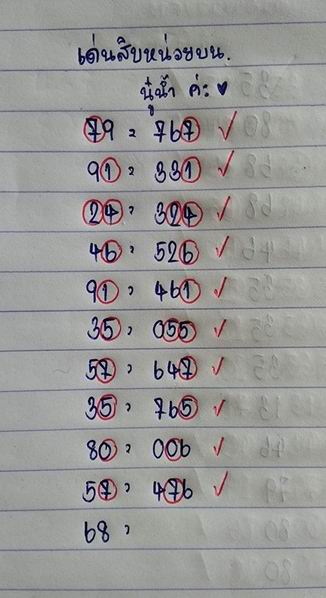 เด่นสิบหน่วยบน.
นู๋น้ำ ค่ะ ♥
79 = 767 ✓
91 = 331 ✓
24 = 324 ✓
46 = 526 ✓
91 = 461 ✓
35 = 055 ✓
57 = 647 ✓
35 = 765 ✓
80 = 006 ✓
57 = 476 ✓
68 =